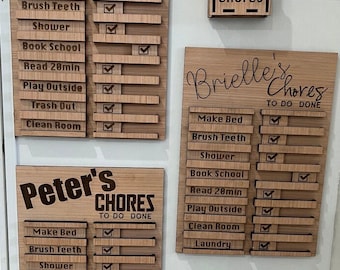 Brush Teeth
Shower
Book School
Read 20min
Play Outside
Trash Out
Clean Room
Peter's
CHORES
TO DO DONE
Make Bed
Brush Teeth
Shower
CHORES
Brielle's
Chores
TO DO DONE
Make Bed
Brush Teeth
Shower
Book School
Read 20min
Play Outside
Clean Room
Laundry